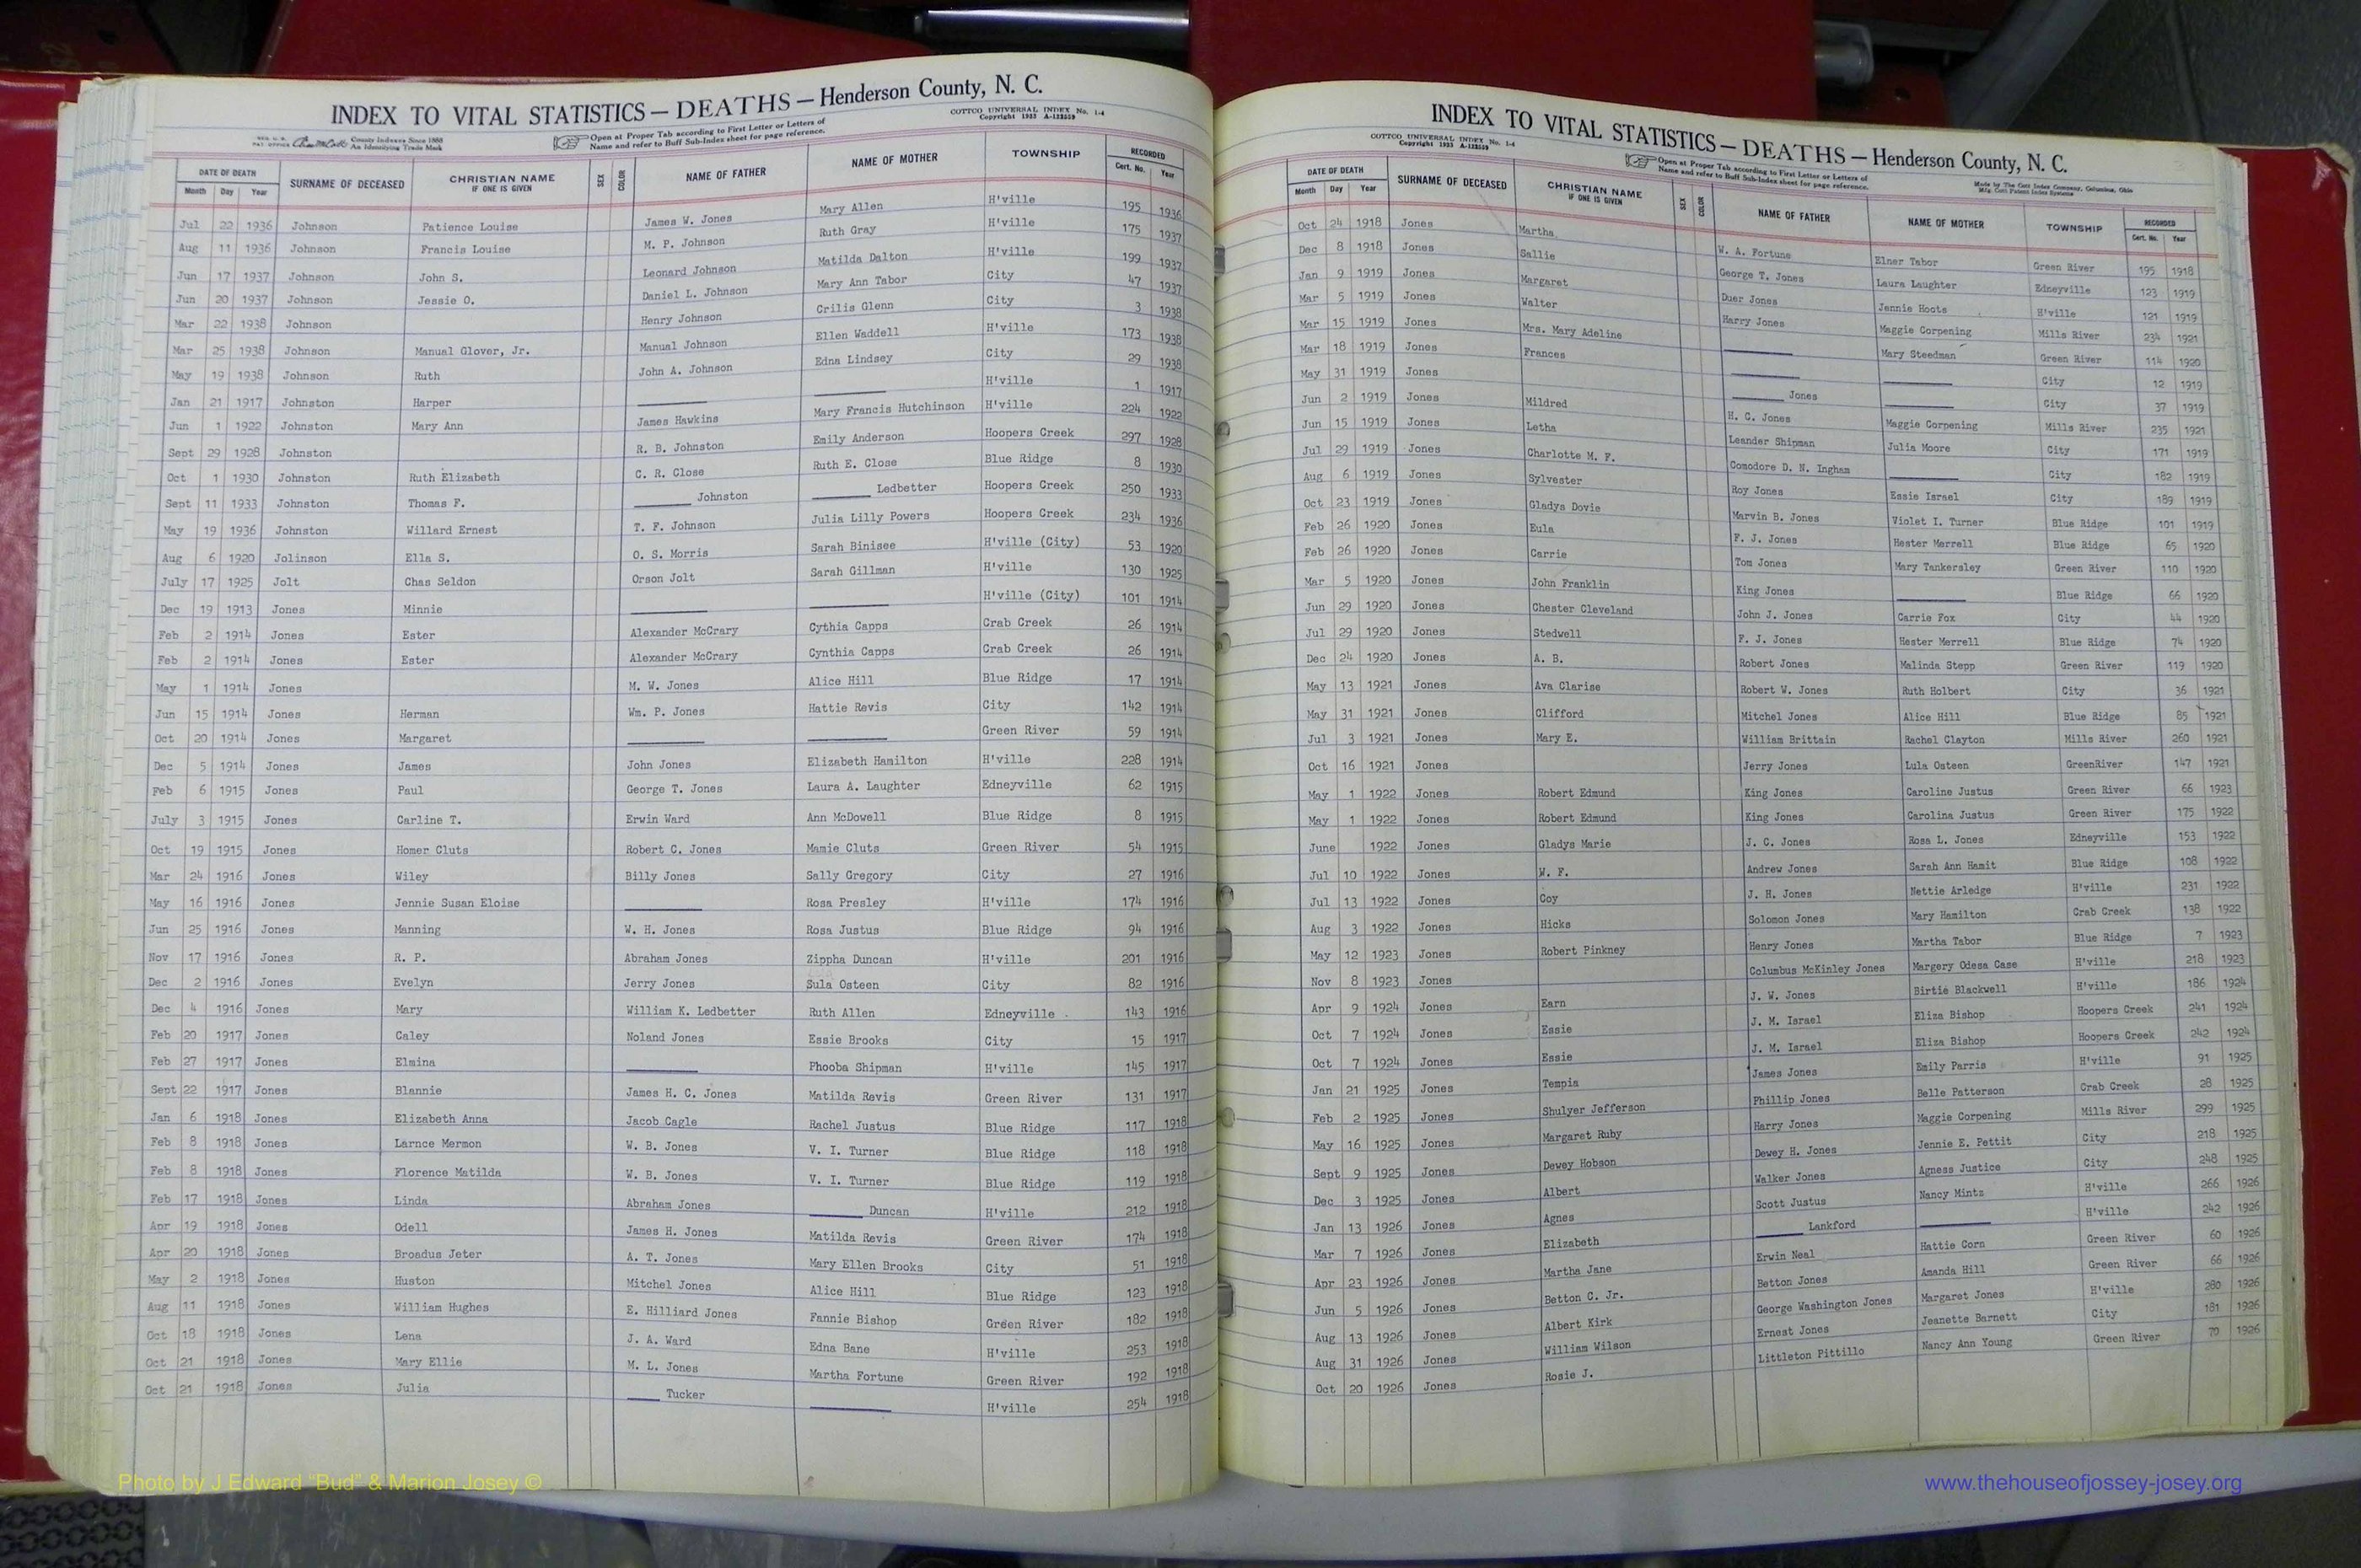 INDEX TO VITAL STATISTICS — DEATHS — Henderson County, N. C.
County Indexes Since 1888
An Identifying Trade Mark
Open at Proper Tab according to First Letter or Letters of
Name and refer to Buff Sub-Index sheet for page reference.
COTTCO UNIVERSAL INDEX No. 1-4
Copyright 1933 A-112559
DATE OF DEATH SURNAME OF DECEASED CHRISTIAN NAME IF ONE IS GIVEN SEX COLOR NAME OF FATHER NAME OF MOTHER TOWNSHIP RECORDED
Month Day Year Cert. No. Year
Jul 22 1936 Johnson Patience Louise James W. Jones Mary Allen H'ville 195 1936
Aug 11 1936 Johnson Francis Louise M. P. Johnson Ruth Gray H'ville 175 1937
Jun 17 1937 Johnson John S. Leonard Johnson Matilda Dalton H'ville 199 1937
Jun 20 1937 Johnson Jessie O. Daniel L. Johnson Mary Ann Tabor City 47 1937
Mar 22 1938 Johnson Henry Johnson Crilis Glenn City 3 1938
Mar 25 1938 Johnson Manual Glover, Jr. Manual Johnson Ellen Waddell H'ville 173 1938
May 19 1938 Johnson Ruth John A. Johnson Edna Lindsey City 29 1938
Jan 21 1917 Johnston Harper H'ville 1 1917
Jun 1 1922 Johnston Mary Ann James Hawkins Mary Francis Hutchinson H'ville 224 1922
Sept 29 1928 Johnston R. B. Johnston Emily Anderson Hoopers Creek 297 1928
Oct 1 1930 Johnston Ruth Elizabeth C. R. Close Ruth E. Close Blue Ridge 8 1930
Sept 11 1933 Johnston Thomas F. Johnston Ledbetter Hoopers Creek 250 1933
May 19 1936 Johnston Willard Ernest T. F. Johnson Julia Lilly Powers Hoopers Creek 234 1936
Aug 6 1920 Jolinson Ella S. O. S. Morris Sarah Binisee H'ville (City) 53 1920
July 17 1925 Jolt Chas Seldon Orson Jolt Sarah Gillman H'ville 130 1925
Dec 19 1913 Jones Minnie H'ville (City) 101 1914
Feb 2 1914 Jones Ester Alexander McCrary Cythia Capps Crab Creek 26 1914
Feb 2 1914 Jones Ester Alexander McCrary Cynthia Capps Crab Creek 26 1914
May 1 1914 Jones M. W. Jones Alice Hill Blue Ridge 17 1914
Jun 15 1914 Jones Herman Wm. P. Jones Hattie Revis City 142 1914
Oct 20 1914 Jones Margaret Green River 59 1914
Dec 5 1914 Jones James John Jones Elizabeth Hamilton H'ville 228 1914
Feb 6 1915 Jones Paul George T. Jones Laura A. Laughter Edneyville 62 1915
July 3 1915 Jones Carline T. Erwin Ward Ann McDowell Blue Ridge 8 1915
Oct 19 1915 Jones Homer Cluts Robert C. Jones Mamie Cluts Green River 54 1915
Mar 24 1916 Jones Wiley Billy Jones Sally Gregory City 27 1916
May 16 1916 Jones Jennie Susan Eloise Rosa Presley H'ville 174 1916
Jun 25 1916 Jones Manning W. H. Jones Rosa Justus Blue Ridge 94 1916
Nov 17 1916 Jones R. P. Abraham Jones Zippha Duncan H'ville 201 1916
Dec 2 1916 Jones Evelyn Jerry Jones Sula Osteen City 82 1916
Dec 4 1916 Jones Mary William K. Ledbetter Ruth Allen Edneyville 143 1916
Feb 20 1917 Jones Caley Noland Jones Essie Brooks City 15 1917
Feb 27 1917 Jones Elmina Phooba Shipman H'ville 145 1917
Sept 22 1917 Jones Blannie James H. C. Jones Matilda Revis Green River 131 1917
Jan 6 1918 Jones Elizabeth Anna Jacob Cagle Rachel Justus Blue Ridge 117 1918
Feb 8 1918 Jones Larnce Mermon W. B. Jones V. I. Turner Blue Ridge 118 1918
Feb 8 1918 Jones Florence Matilda W. B. Jones V. I. Turner Blue Ridge 119 1918
Feb 17 1918 Jones Linda Abraham Jones Duncan H'ville 212 1918
Apr 19 1918 Jones Odell James H. Jones Matilda Revis Green River 174 1918
Apr 20 1918 Jones Broadus Jeter A. T. Jones Mary Ellen Brooks City 51 1918
May 2 1918 Jones Huston Mitchel Jones Alice Hill Blue Ridge 123 1918
Aug 11 1918 Jones William Hughes E. Hilliard Jones Fannie Bishop Green River 182 1918
Oct 18 1918 Jones Lena J. A. Ward Edna Bane H'ville 253 1918
Oct 21 1918 Jones Mary Ellie M. L. Jones Martha Fortune Green River 192 1918
Oct 21 1918 Jones Julia Tucker H'ville 254 1918
Photo by J Edward "Bud" & Marion Josey ©
INDEX TO VITAL STATISTICS — DEATHS — Henderson County, N. C.
COTTCO UNIVERSAL INDEX No. 1-4
Copyright 1933 A-112559
Open at Proper Tab according to First Letter or Letters of
Name and refer to Buff Sub-Index sheet for page reference.
Made by The Cott Index Company, Columbus, Ohio
Mfg. Cott Patent Index Systems
DATE OF DEATH SURNAME OF DECEASED CHRISTIAN NAME IF ONE IS GIVEN SEX COLOR NAME OF FATHER NAME OF MOTHER TOWNSHIP RECORDED
Month Day Year Cert. No. Year
Oct 24 1918 Jones Martha W. A. Fortune Elner Tabor Green River 195 1918
Dec 8 1918 Jones Sallie George T. Jones Laura Laughter Edneyville 123 1919
Jan 9 1919 Jones Margaret Duer Jones Jennie Hoots H'ville 121 1919
Mar 5 1919 Jones Walter Harry Jones Maggie Corpening Mills River 234 1921
Mar 15 1919 Jones Mrs. Mary Adeline Mary Steedman Green River 114 1920
Mar 18 1919 Jones Frances City 12 1919
May 31 1919 Jones Jones City 37 1919
Jun 2 1919 Jones Mildred H. C. Jones Maggie Corpening Mills River 235 1921
Jun 15 1919 Jones Letha Leander Shipman Julia Moore City 171 1919
Jul 29 1919 Jones Charlotte M. F. Comodore D. N. Ingham City 182 1919
Aug 6 1919 Jones Sylvester Roy Jones Essie Israel City 189 1919
Oct 23 1919 Jones Gladys Dovie Marvin B. Jones Violet I. Turner Blue Ridge 101 1919
Feb 26 1920 Jones Eula F. J. Jones Hester Merrell Blue Ridge 65 1920
Feb 26 1920 Jones Carrie Tom Jones Mary Tankersley Green River 110 1920
Mar 5 1920 Jones John Franklin King Jones Blue Ridge 66 1920
Jun 29 1920 Jones Chester Cleveland John J. Jones Carrie Fox City 44 1920
Jul 29 1920 Jones Stedwell F. J. Jones Hester Merrell Blue Ridge 74 1920
Dec 24 1920 Jones A. B. Robert Jones Malinda Stepp Green River 119 1920
May 13 1921 Jones Ava Clarise Robert W. Jones Ruth Holbert City 36 1921
May 31 1921 Jones Clifford Mitchel Jones Alice Hill Blue Ridge 85 1921
Jul 3 1921 Jones Mary E. William Brittain Rachel Clayton Mills River 260 1921
Oct 16 1921 Jones Jerry Jones Lula Osteen GreenRiver 147 1921
May 1 1922 Jones Robert Edmund King Jones Caroline Justus Green River 66 1923
May 1 1922 Jones Robert Edmund King Jones Carolina Justus Green River 175 1922
June 1922 Jones Gladys Marie J. C. Jones Rosa L. Jones Edneyville 153 1922
Jul 10 1922 Jones W. F. Andrew Jones Sarah Ann Hamit Blue Ridge 108 1922
Jul 13 1922 Jones Coy J. H. Jones Nettie Arledge H'ville 231 1922
Aug 3 1922 Jones Hicks Solomon Jones Mary Hamilton Crab Creek 138 1922
May 12 1923 Jones Robert Pinkney Henry Jones Martha Tabor Blue Ridge 7 1923
Nov 8 1923 Jones Columbus McKinley Jones Margery Odesa Case H'ville 218 1923
Apr 9 1924 Jones Earn J. W. Jones Birtie Blackwell H'ville 186 1924
Oct 7 1924 Jones Essie J. M. Israel Eliza Bishop Hoopers Creek 241 1924
Oct 7 1924 Jones Essie J. M. Israel Eliza Bishop Hoopers Creek 242 1924
Jan 21 1925 Jones Tempia James Jones Emily Parris H'ville 91 1925
Feb 2 1925 Jones Shulyer Jefferson Phillip Jones Belle Patterson Crab Creek 28 1925
May 16 1925 Jones Margaret Ruby Harry Jones Maggie Corpening Mills River 299 1925
Sept 9 1925 Jones Dewey Hobson Dewey H. Jones Jennie E. Pettit City 218 1925
Dec 3 1925 Jones Albert Walker Jones Agness Justice City 248 1925
Jan 13 1926 Jones Agnes Scott Justus Nancy Mintz H'ville 266 1926
Mar 7 1926 Jones Elizabeth Lankford H'ville 242 1926
Apr 23 1926 Jones Martha Jane Erwin Neal Hattie Corn Green River 60 1926
Jun 5 1926 Jones Betton C. Jr. Betton Jones Amanda Hill Green River 66 1926
Aug 13 1926 Jones Albert Kirk George Washington Jones Margaret Jones H'ville 280 1926
Aug 31 1926 Jones William Wilson Ernest Jones Jeanette Barnett City 181 1926
Oct 20 1926 Jones Rosie J. Littleton Pittillo Nancy Ann Young Green River 70 1926
www.thehouseofjossey-josey.org